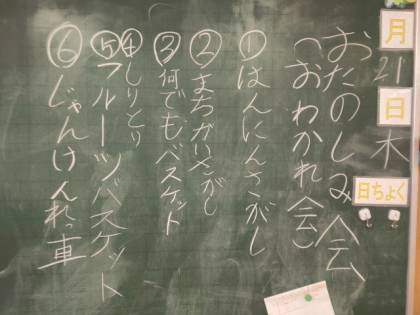 月
21
日
木
日ちょく
おたのしみ会
(おわかれ会)
①はんにんさがし
②まちがいさがし
③何でもバスケット
④しりとり
⑤フルーツバスケット
⑥じゃんけんれっ車